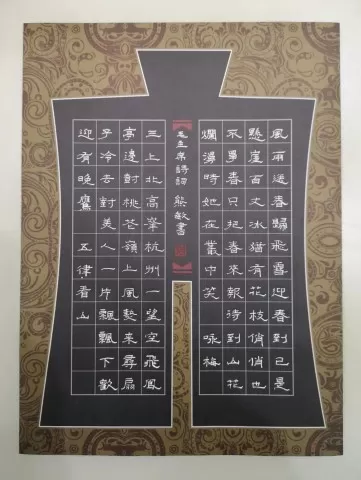 風雨送春歸飛雪迎春到已是
懸崖百丈冰猶有花枝俏俏也
不爭春只把春來報待到山花
爛漫時她在叢中笑 詠梅
毛主席詩詞 熊敏書
三上北高峯杭州一望空飛鳳
亭邊樹桃花嶺上風熱來尋扇
子冷去對美人一片飄飄下歡
迎有晚鷹 五律看山